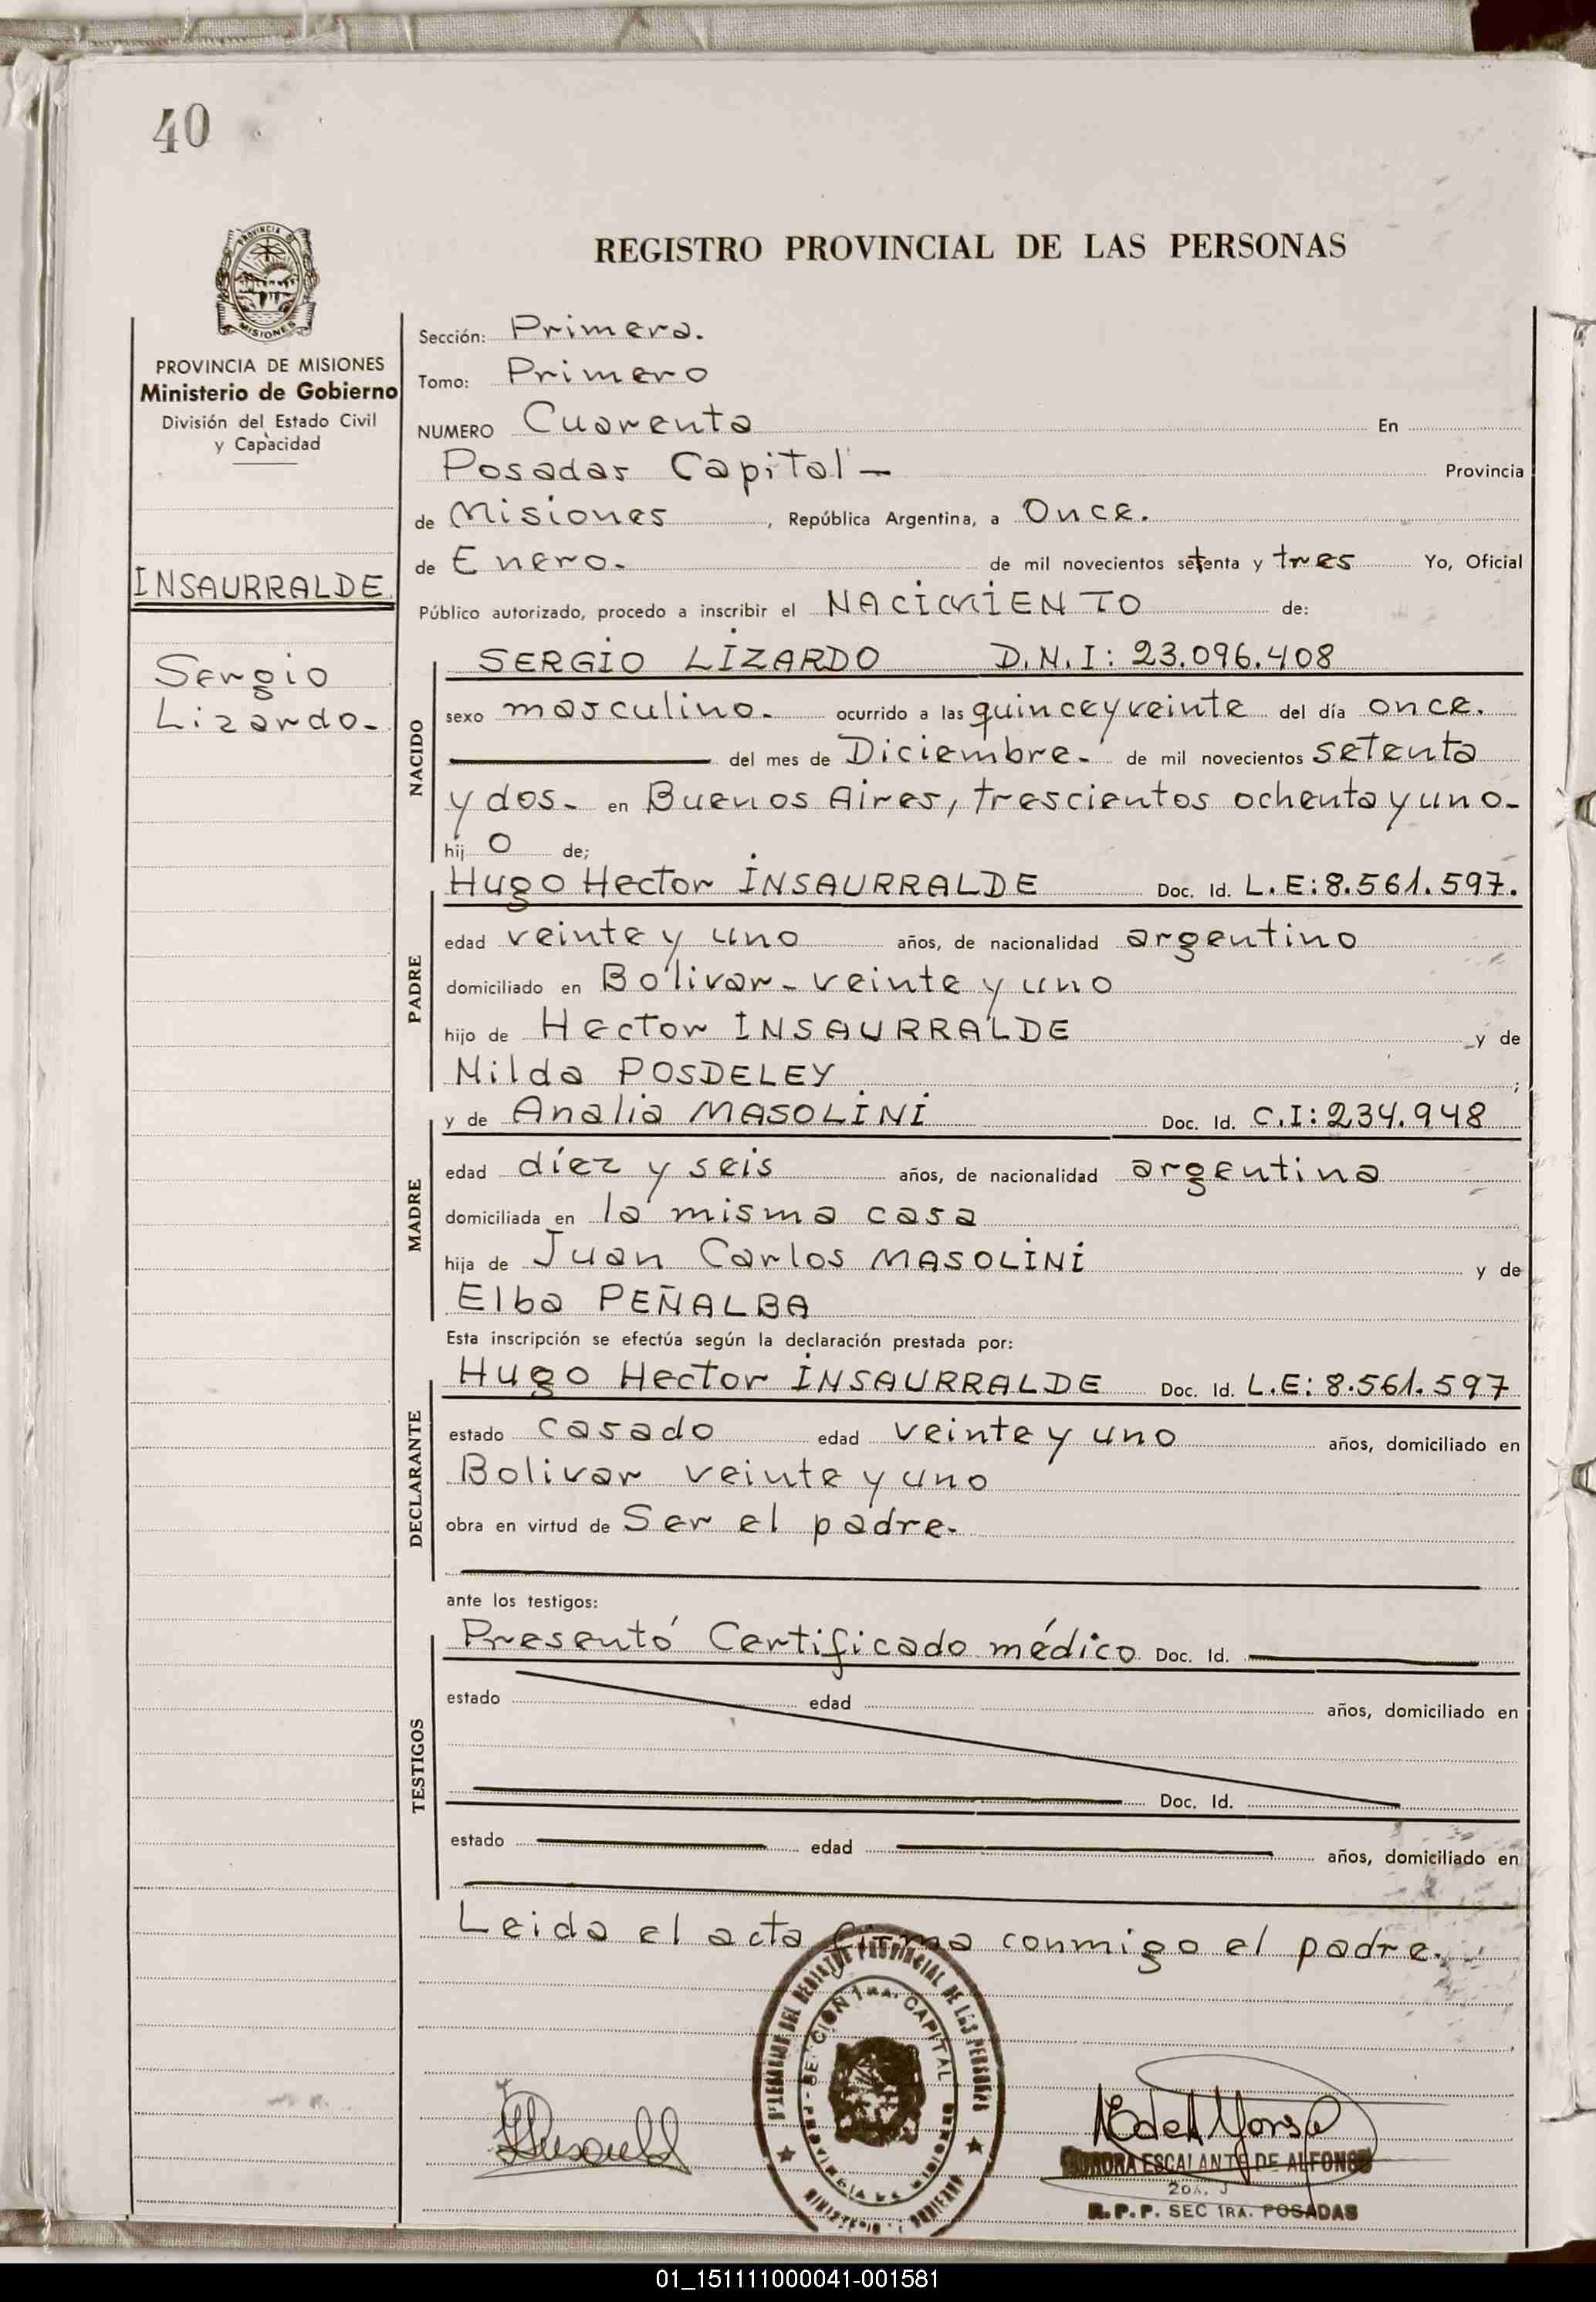 40
PROVINCIA DE
MISIONES
REGISTRO PROVINCIAL DE LAS PERSONAS
PROVINCIA DE MISIONES
Ministerio de Gobierno
División del Estado Civil
y Capacidad
INSAURRALDE
Sergio
Lizardo-
Sección: Primera.
Tomo: Primero
NUMERO Cuarenta En
Posadas Capital - Provincia
de Misiones , República Argentina, a Once.
de Enero. de mil novecientos setenta y tres Yo, Oficial
Público autorizado, procedo a inscribir el NACIMIENTO de:
NACIDO
SERGIO LIZARDO D.N.I: 23.096.408
sexo masculino. ocurrido a las quince y veinte del día once.
del mes de Diciembre. de mil novecientos setenta
y dos. en Buenos Aires, trescientos ochenta y uno-
hij o de;
PADRE
Hugo Hector INSAURRALDE Doc. Id. L.E: 8.561.597.
edad veinte y uno años, de nacionalidad argentino
domiciliado en Bolivar - veinte y uno
hijo de Hector INSAURRALDE y de
Nilda POSDELEY ;
MADRE
y de Analia MASOLINI Doc. Id. C.I: 234.948
edad diez y seis años, de nacionalidad argentina
domiciliada en la misma casa
hija de Juan Carlos MASOLINI y de
Elba PEÑALBA
Esta inscripción se efectúa según la declaración prestada por:
DECLARANTE
Hugo Hector INSAURRALDE Doc. Id. L.E: 8.561.597
estado casado edad veinte y uno años, domiciliado en
Bolivar veinte y uno
obra en virtud de Ser el padre.
ante los testigos:
TESTIGOS
Presentó Certificado médico Doc. Id.
estado edad años, domiciliado en
Doc. Id.
estado edad años, domiciliado en
Leida el acta firma conmigo el padre.
REGISTRO PROVINCIAL DE LAS PERSONAS
SECCION 1ra. CAPITAL
ESCALANTE DE ALFONSO
R.P.P. SEC 1RA. POSADAS
01_151111000041-001581